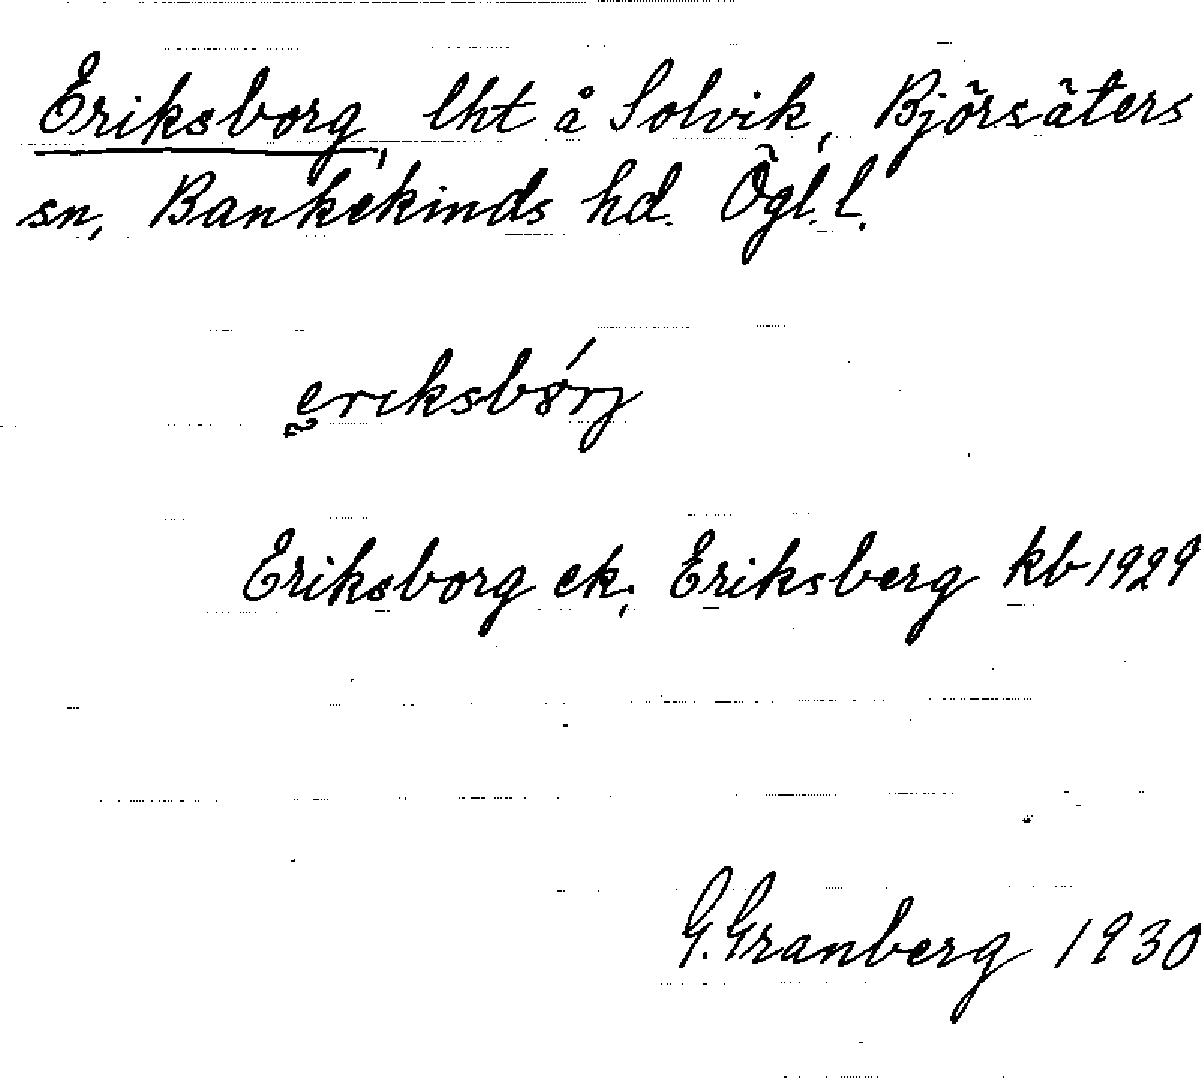 Eriksborg, lht å Solvik, Björsäters
sn, Bankekinds hd. Ögl. l.
eriksbórj
Eriksborg ek; Eriksberg kb 1929
G. Granberg 1930